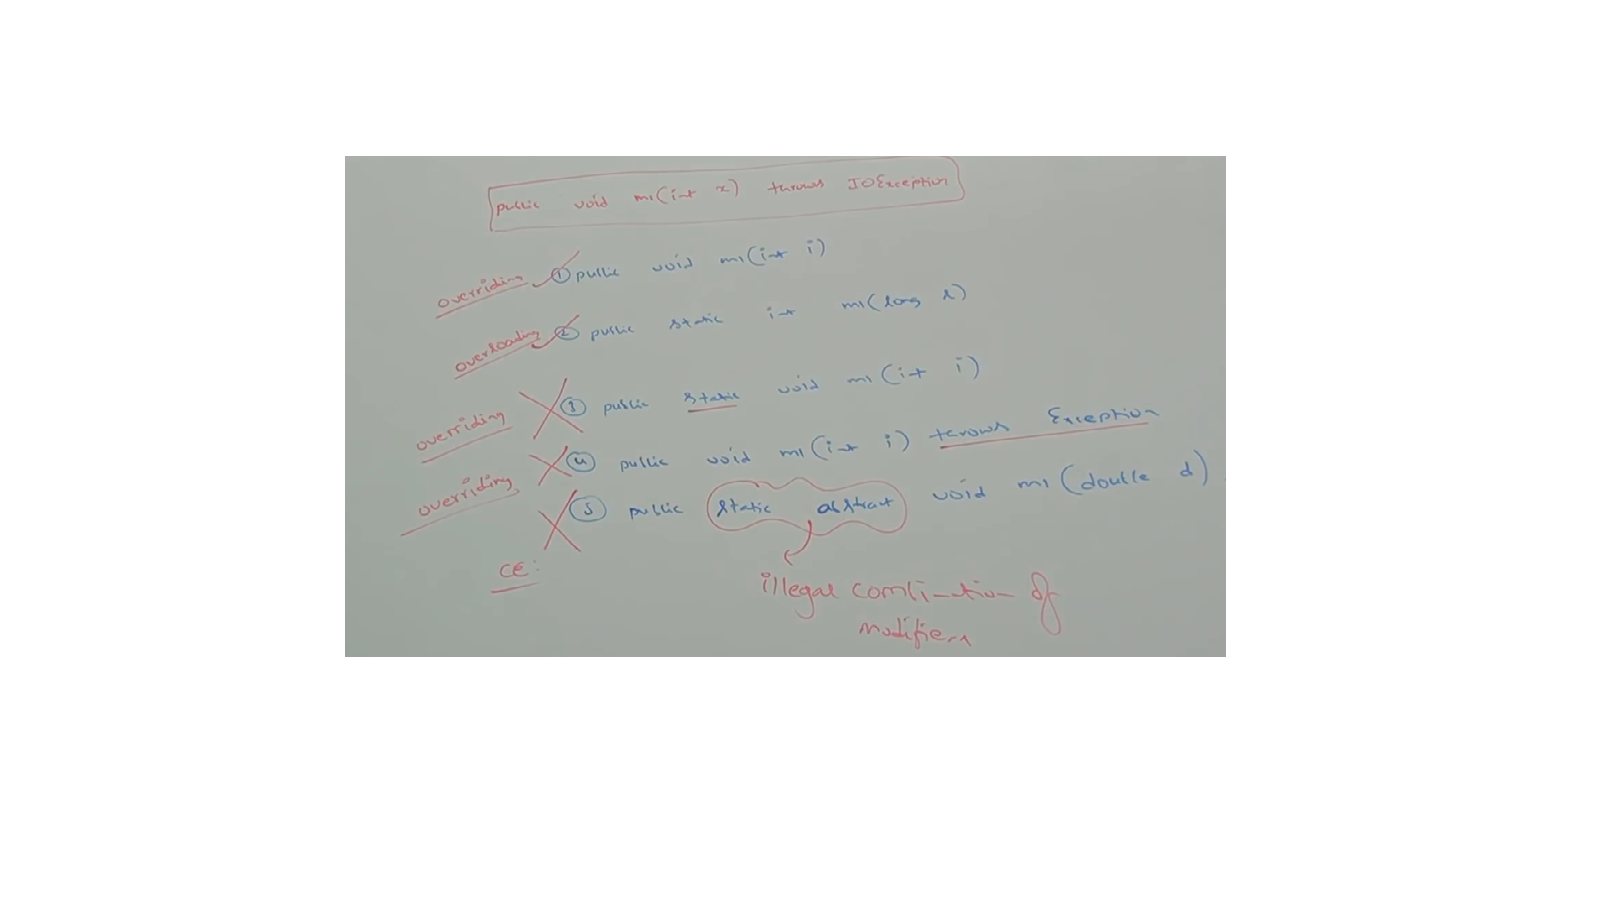 public void m1(int x) throws IOException
overriding ① public void m1(int i)
overloading ② public static int m1(long l)
overriding ③ public static void m1(int i)
overriding ④ public void m1(int i) throws Exception
⑤ public static abstract void m1(double d)
CE:
illegal combination of
modifiers